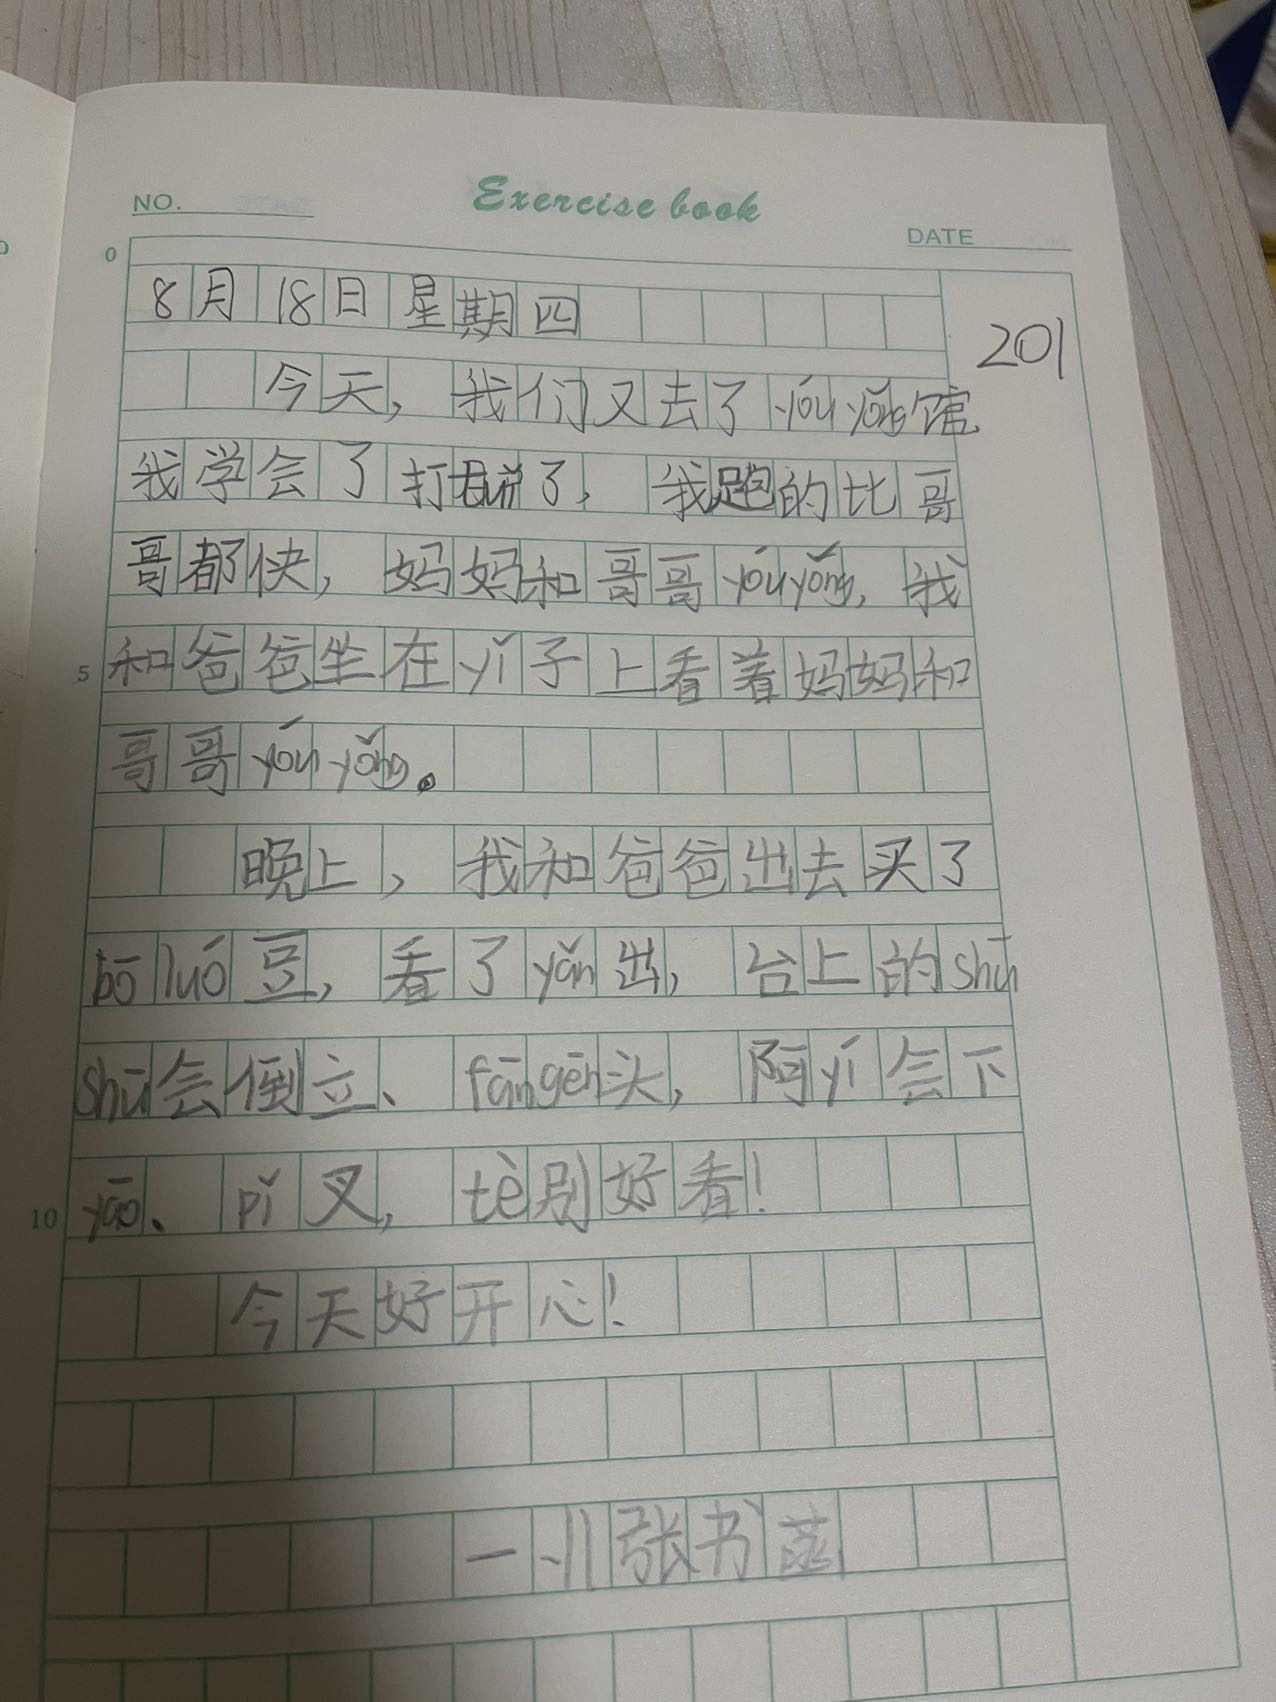 NO.
Exercise book
DATE
0
8月18日星期四
201
今天，我们又去了yóuyǒng馆
我学会了打 了，我跑的比哥
哥都快，妈妈和哥哥yóuyǒng，我
5
和爸爸坐在yǐ子上看着妈妈和
哥哥yóuyǒng。
晚上，我和爸爸出去买了
bō luó豆，看了yǎn出，台上的shū
shū会倒立、fāngēn头，阿yí会下
10
yāo、pǐ叉，tè别好看！
今天好开心！
张书